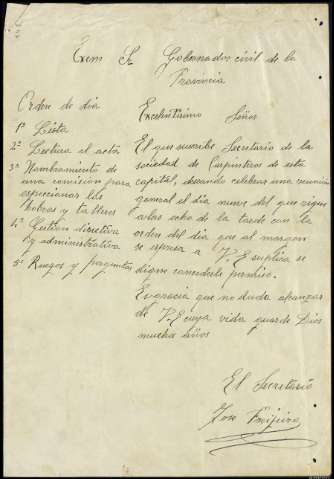 Exmo Sr Gobernador civil de la
Provincia
Orden de dia
1º Lista
2º Lectura al acta
3º Nombramiento de
una comisión para
especcionar las
hobras y talleres
4º Gestion directiva
y administrativa
5º Ruegos y preguntas
Excelentisimo Señor
El que suscribe Secretario de la
sociedad de Carpinteros de esta
capital, deseando celebrar una reunion
general el dia nueve del que rige
a las ocho de la tarde con la
orden del dia que al margen
se espresa a V.E suplica se
digne concederle permiso.
Es gracia que no duda alcanzar
de V.E cuya vida guarde Dios
muchos años
El Secretario
Jose